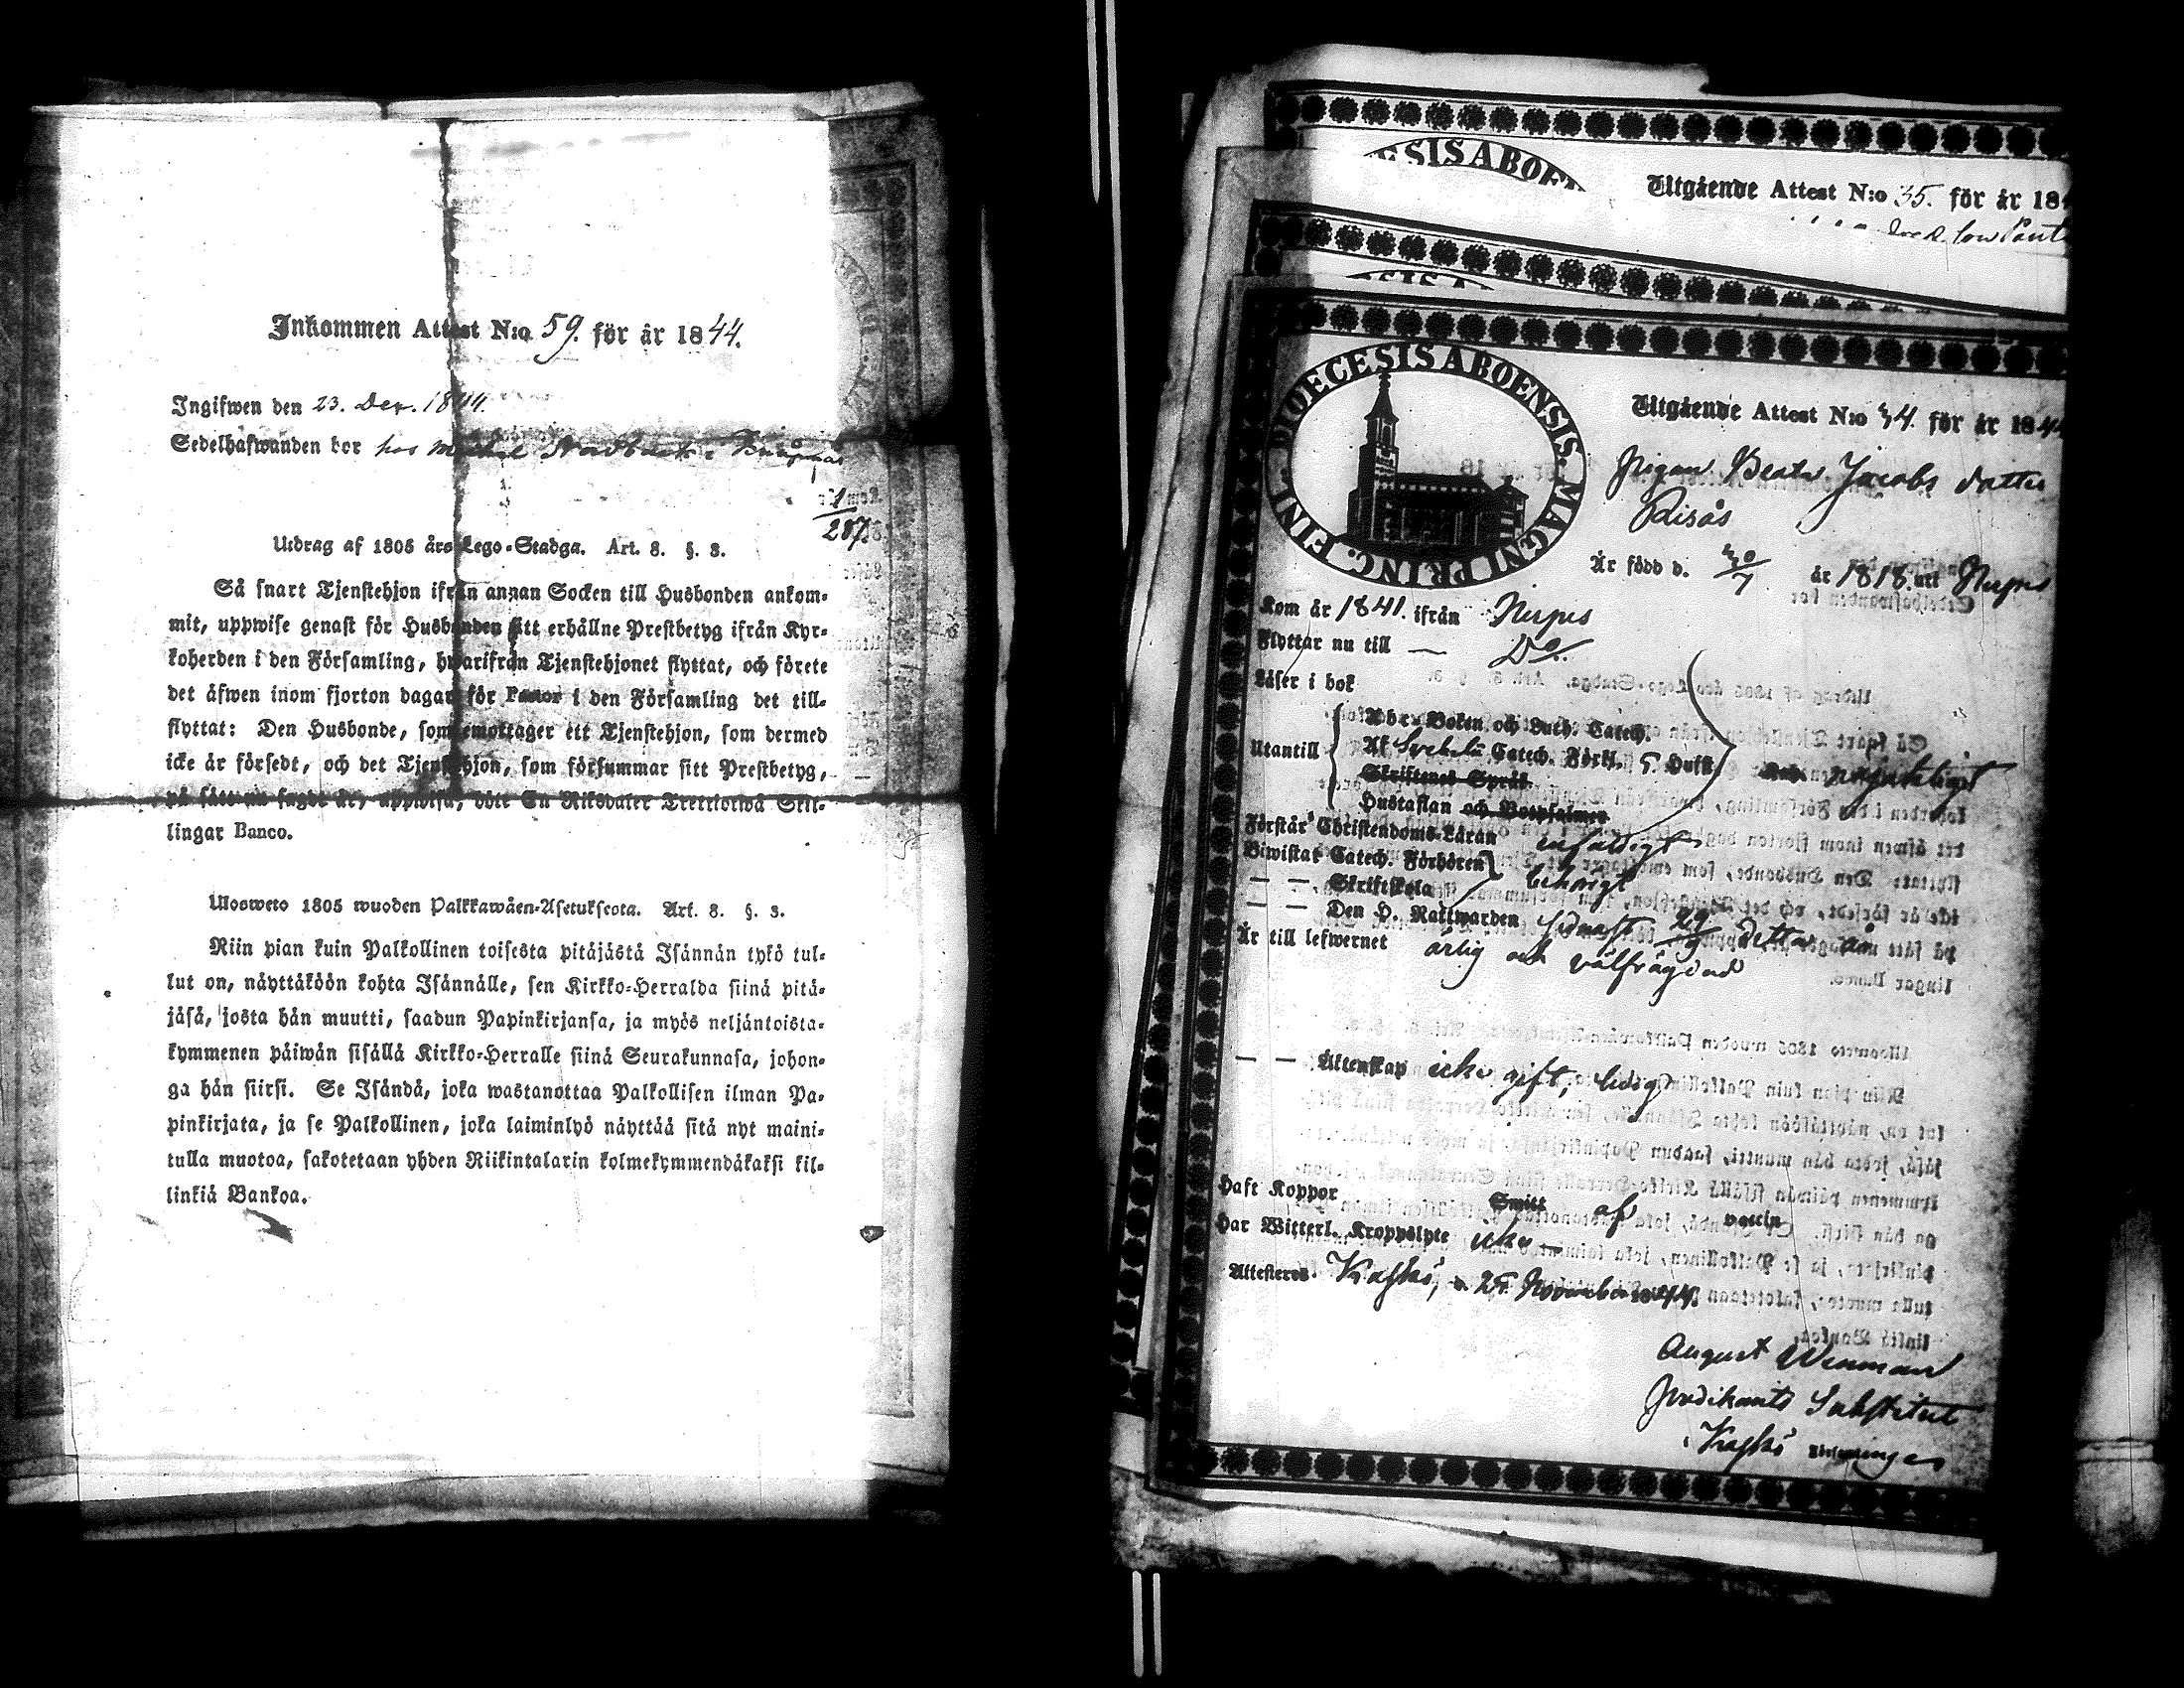 Inkommen Attest N:o 59. för år 1844.
Ingifwen den 23. Dec. 1844.
Sedelhafwanden bor hos
1
287
Utdrag af 1805 års Lego-Stadga. Art. 8. §. 3.
Så snart Tjenstehjon ifrån annan Socken till Husbonden ankom-
mit, uppwise genast för Husbonden sitt erhållne Prestbetyg ifrån Kyr-
koherden i den Församling, hwarifrån Tjenstehjonet flyttat, och förete
det äfwen inom fjorton dagar för Pastor i den Församling det till-
flyttat: Den Husbonde, som emottager ett Tjenstehjon, som dermed
icke är försedt, och det Tjenstehjon, som försummar sitt Prestbetyg,
på sätt nu sagdt är, uppwisa, böte En Riksdaler Trettiotwå Skil-
lingar Banco.
Ulosweto 1805 wuoden Palkkawäen-Asetuksesta. Art. 8. §. 3.
Niin pian kuin Palkollinen toisesta pitäjästä Isännän tykö tul-
lut on, näyttäköön kohta Isännälle, sen Kirkko-Herralda siinä pitä-
jäsä, josta hän muutti, saadun Papinkirjansa, ja myös neljäntoista-
kymmenen päiwän sisällä Kirkko-Herralle siinä Seurakunnasa, johon-
ga hän siirsi. Se Isändä, joka wastanottaa Palkollisen ilman Pa-
pinkirjata, ja se Palkollinen, joka laiminlyö näyttää sitä nyt maini-
tulla muotoa, sakotetaan yhden Riikintalarin kolmekymmendäkaksi kil-
linkiä Bankoa.
Utgående Attest N:o 35. för år 184
DIOECESIS ABOENSIS. MAGNI PRINC. FINL.
Utgående Attest N:o 34. för år 1844
Pigan Beata Jacobs dotter
Risås
Är född d. 30/7 år 1818. uti Nerpes
Kom år 1841. ifrån Nerpes
Flyttar nu till — Do.
Läser i bok
Utantill
Abc-Boken och Luth. Catech.
Af Svebelii Catech. Förkl. 5. Hufst.
Skriftenes Språk
Hustaflan och Botpsalmer
nöjaktigt
Förstår Christendoms-Läran enfaldigt
Biwistat Catech. Förhören
— — Skriftskola
behörigt
— — Den H. Nattwarden sednast 29/9 detta år
Är till lefwernet ärlig och välfrägdad
— — Äktenskap icke gift, ledig
Haft Koppor Smitt af vaccin
Har Witterl. Kroppslyte icke
Attesteras. Kaskö, d. 25 November 1844.
August Wenman
Predikants Substitut
i Kaskö